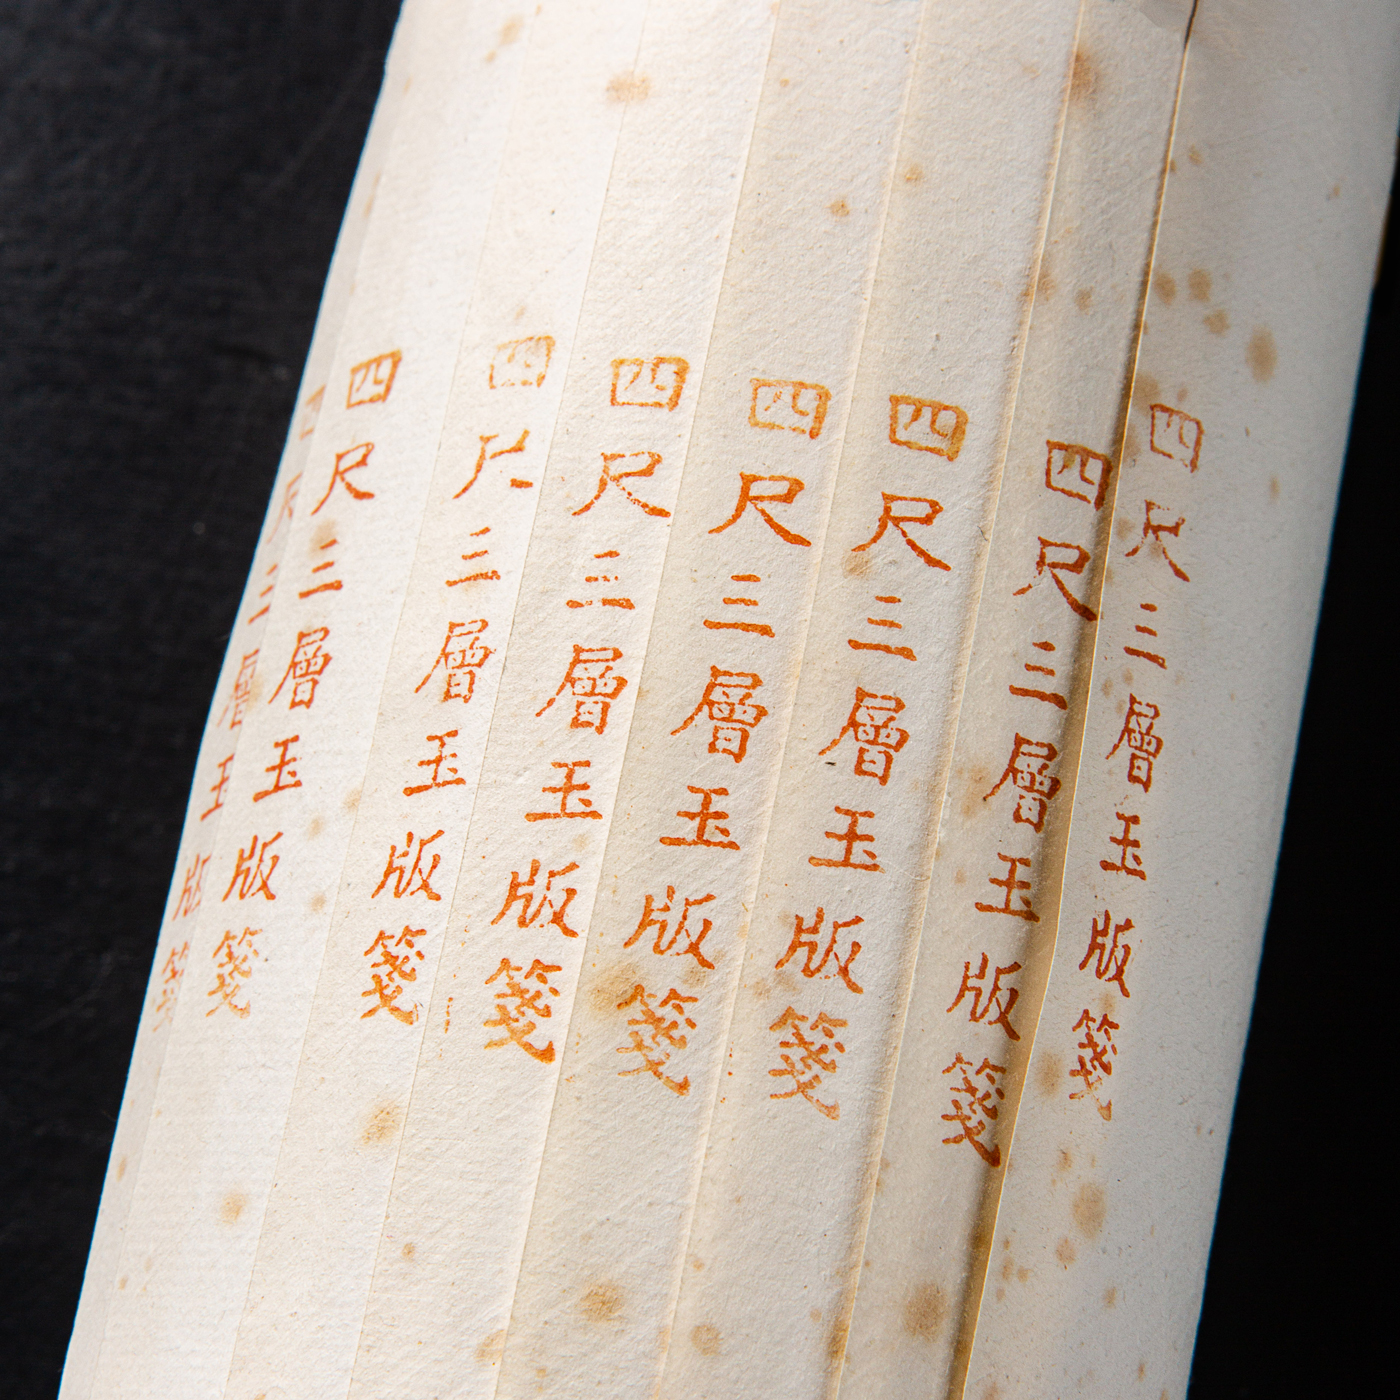 四尺三層玉版箋
四尺三層玉版箋
四尺三層玉版箋
四尺三層玉版箋
四尺三層玉版箋
四尺三層玉版箋
四尺三層玉版箋
四尺三層玉版箋